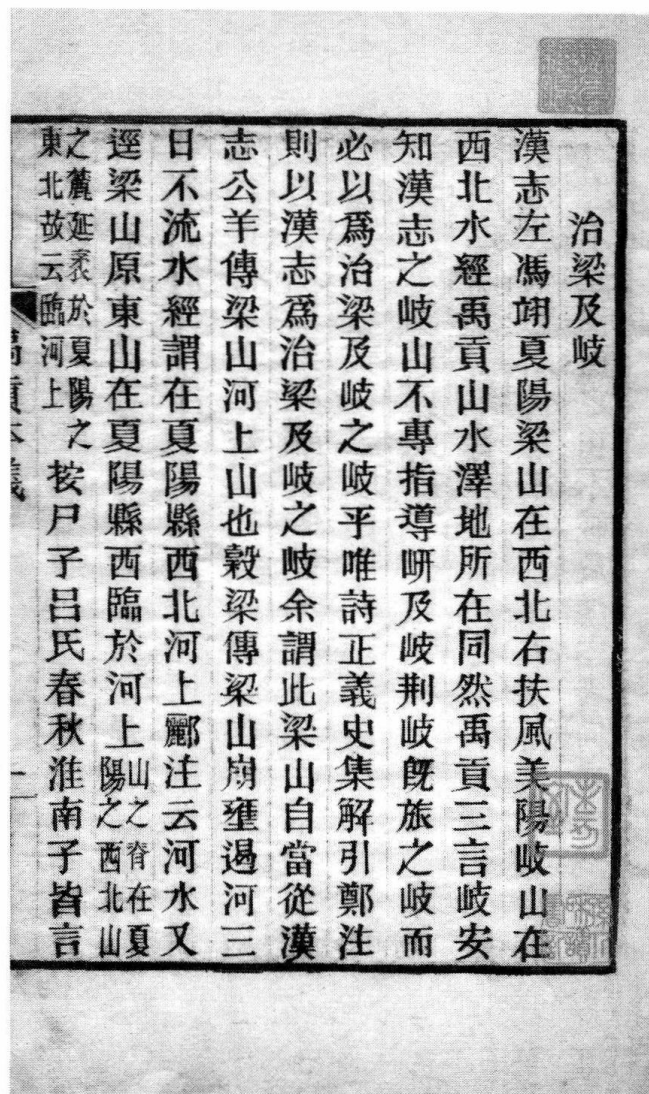 治梁及岐
漢志左馮翊夏陽梁山在西北右扶風美陽岐山在
西北水經禹貢山水澤地所在同然禹貢三言岐安
知漢志之岐山不專指導岍及岐荆岐旣旅之岐而
必以爲治梁及岐之岐乎唯詩正義史集解引鄭注
則以漢志爲治梁及岐之岐余謂此梁山自當從漢
志公羊傳梁山河上山也穀梁傳梁山崩壅遏河三
日不流水經謂在夏陽縣西北河上酈注云河水又
逕梁山原東山在夏陽縣西臨於河上山之脊在夏陽之西北山
之麓延袤於夏陽之東北故云臨河上按尸子呂氏春秋淮南子皆言
禹貢本義
一